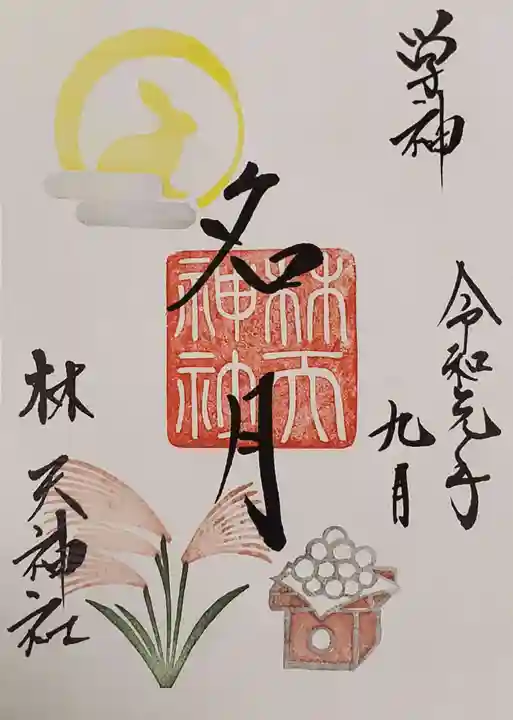 学神
令和元年
九月
名月
林天神社
林天神社